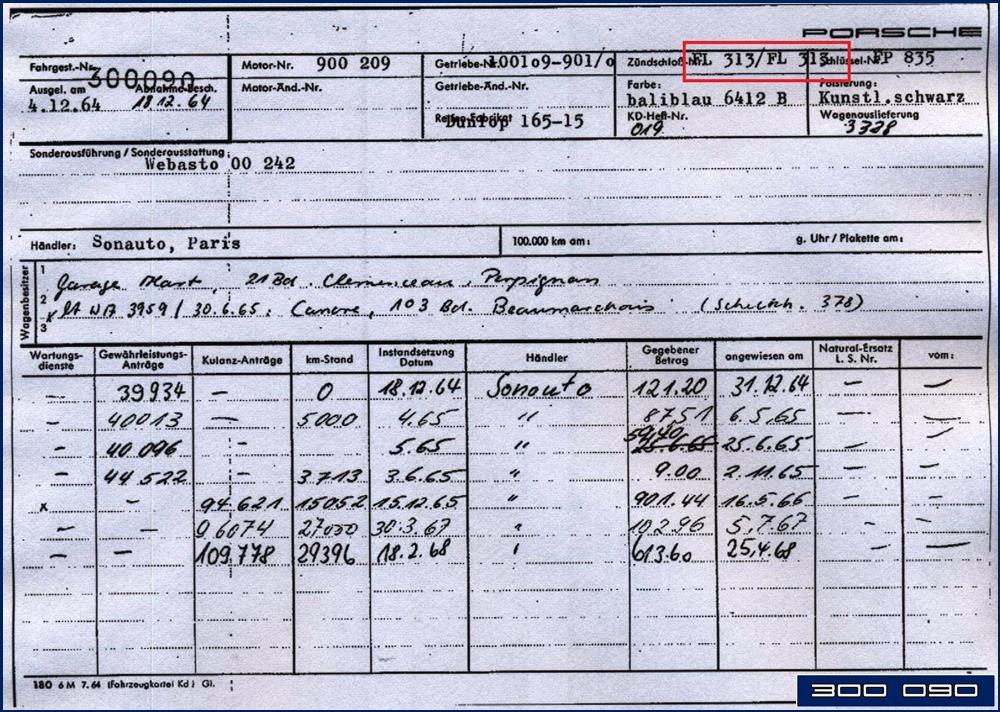 PORSCHE
Fahrgest.-Nr. 300090
Motor-Nr. 900 209
Getriebe-Nr. 100109-901/0
Zündschloß-Nr. FL 313/FL 313
Schlüssel-Nr. FP 835
Ausgel. am 4.12.64
Abnahme-Besch. 18 12. 64
Motor-Änd.-Nr.
Getriebe-Änd.-Nr.
Farbe: baliblau 6412 B
Polsterung: Kunstl.schwarz
Reifen-Fabrikat Dunlop 165-15
KD-Heft-Nr. 019
Wagenauslieferung 3328
Sonderausführung / Sonderausstattung:
Webasto 00 242
Händler: Sonauto, Paris
100.000 km am:
g. Uhr / Plakette am:
Wagenbesitzer
1 Garage Mart, 21 Bd. Clemenceau, Perpignan
2 x lt WA 3959 / 30.6.65: Canore, 103 Bd. Beaumarchais (Schultch. 378)
3
Wartungsdienste Gewährleistungs-Anträge Kulanz-Anträge km-Stand Instandsetzung Datum Händler Gegebener Betrag angewiesen am Natural-Ersatz L. S. Nr. vom:
— 39934 — 0 18.12.64 Sonauto 121.20 31.12.64 — —
— 40013 — 5000 4.65 " 87,51 6.5.65 — —
— 40096 - 5.65 " 59,40 25.6.65 25.6.65 — —
— 44522 3713 3.6.65 " 9.00 2.11.65 — —
x - 94621 15052 15.12.65 " 901.44 16.5.66 — —
— — 96074 27000 30.3.67 " 102.96 5.7.67 - —
— — 109.778 29396 18.2.68 " 613.60 25.4.68 — —
180 6 M 7.64 (Fahrzeugkartei Kd) Gl.
300 090